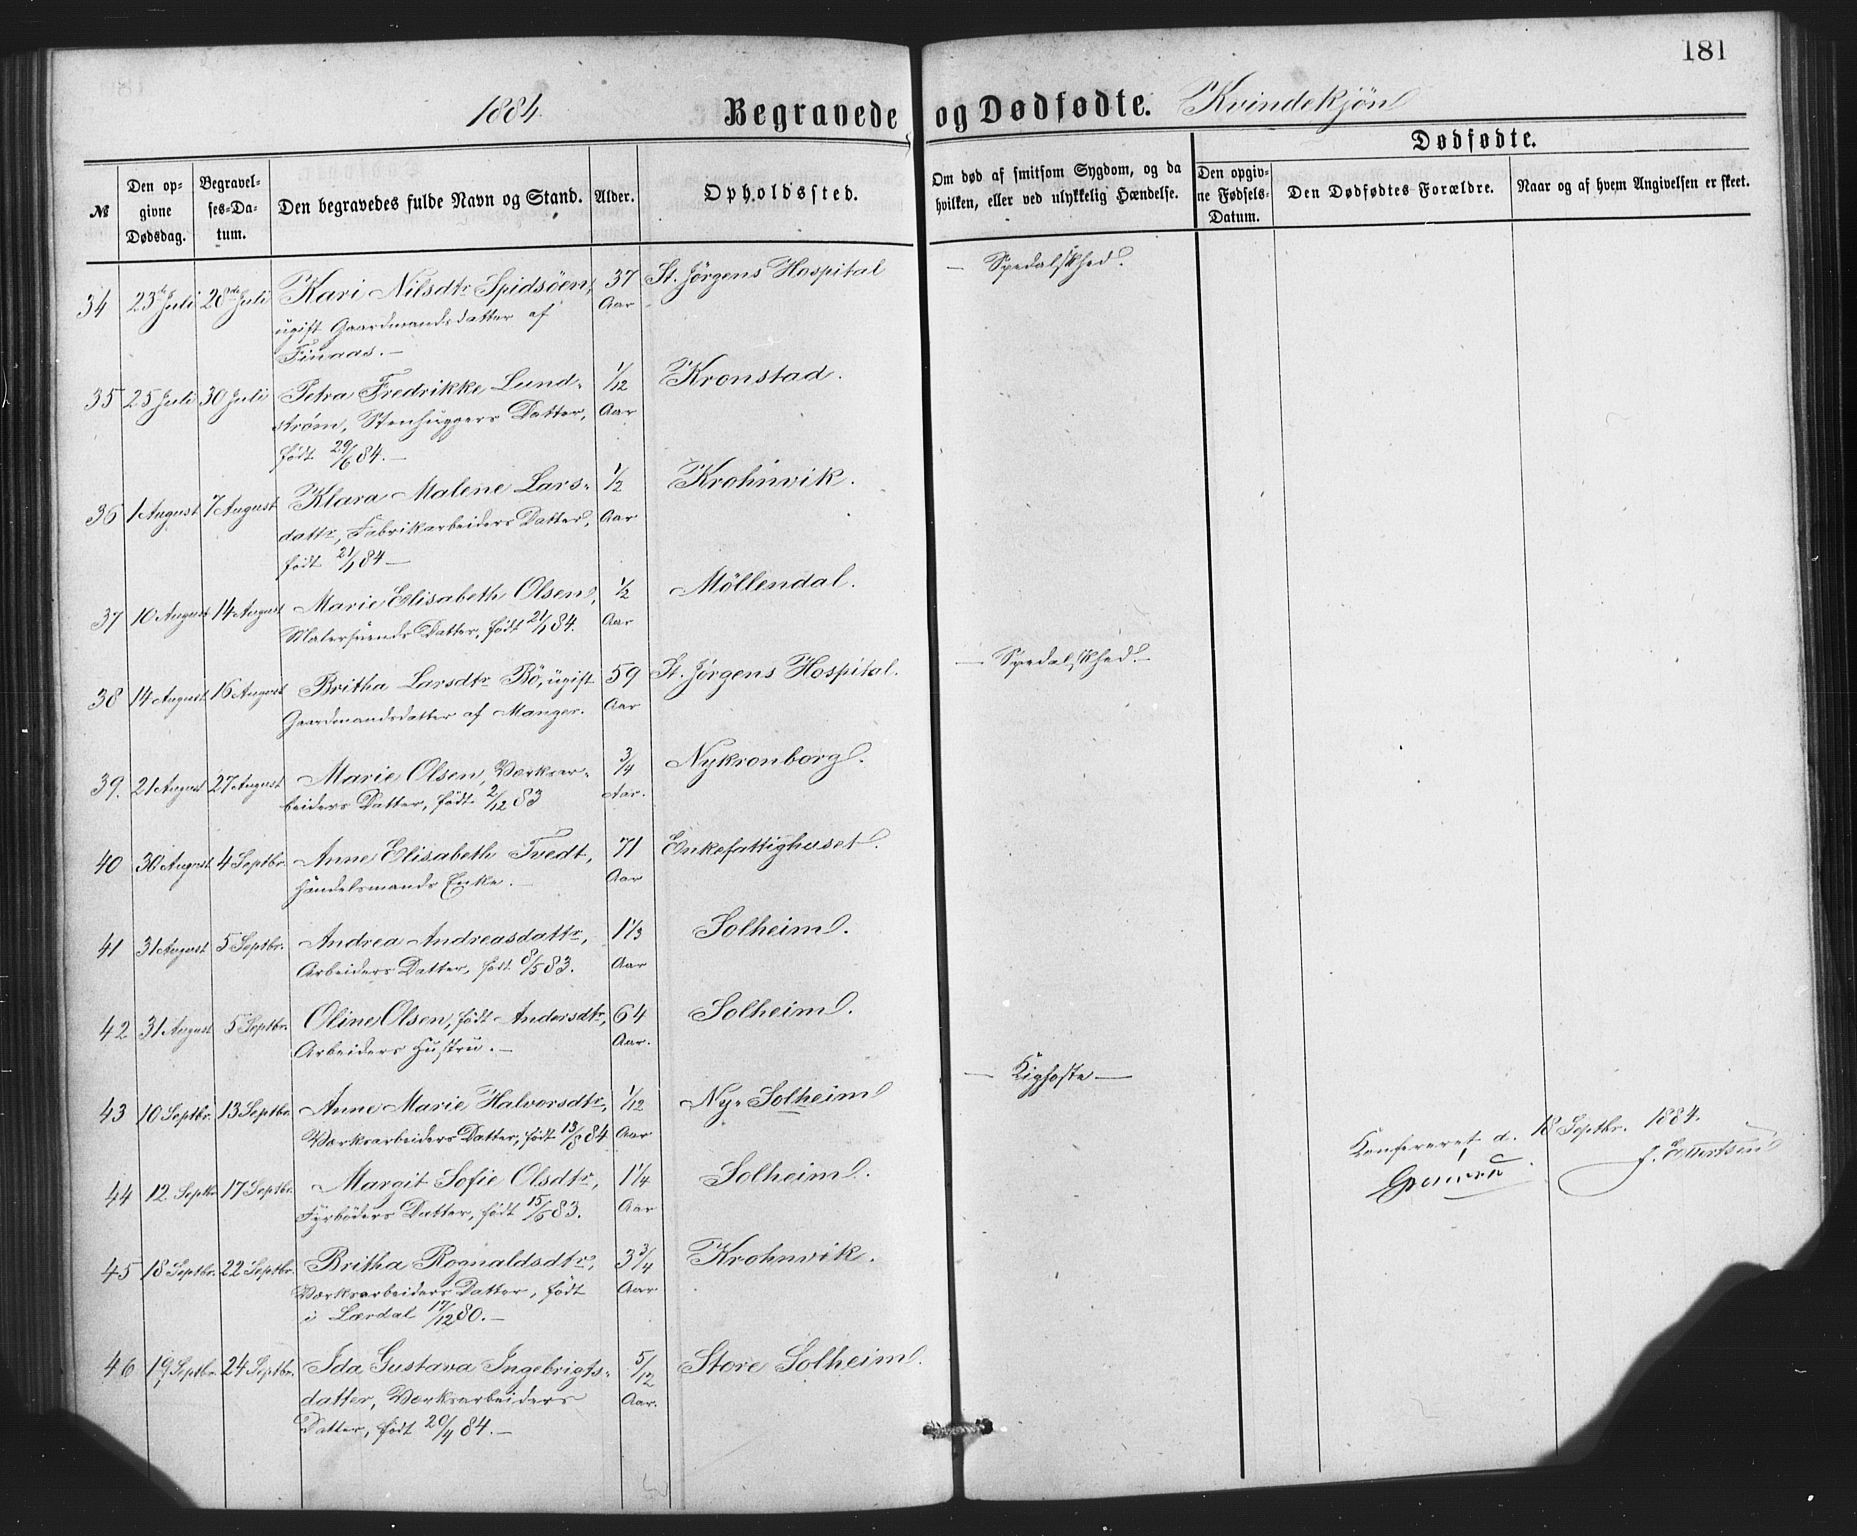 181
1884. Begravede og Dødfødte. Kvindekjøn
Dødfødte.
№
Den opgivne Dødsdag.
Begravelses-Datum.
Den begravedes fulde Navn og Stand.
Alder.
Opholdssted.
Om død af smitsom Sygdom, og da hvilken, eller ved ulykkelig Hændelse.
Den opgivne Fødsels-Datum.
Den Dødfødtes Forældre.
Naar og af hvem Angivelsen er skeet.
34 23de Juli 28de Juli Kari Nilsdtr Spidsöen, 37 St. Jørgens Hospital — Spedalskhed.
ugift Gaardmandsdatter af Aar
Finaas. —
35 25 Juli 30 Juli Petra Fredrikke Lund- 1/12 Kronstad.
strøm, Stenhuggers Datter, Aar
født 29/6 84. —
36 1 August 7 August Klara Malene Lars- 1/2 Krohnvik.
dattr, Fabrikarbeiders Datter, Aar
født 21/1 84 —
37 10 August 14 August Marie Elisabeth Olsen, 1/2 Möllendal.
Malersvends Datter, født 21/1 84. Aar
38 14 August 16 August Britha Larsdtr Bö, ugift 59 St. Jørgens Hospital. — Spedalskhed. —
Gaardmandsdatter af Manger. Aar
39. 21 August 27 August Marie Olsen, Værksar- 3/4 Nykronborg.
beiders Datter, født 2/12 83 Aar.
40 30 August 4 Septbr. Anne Elisabeth Tvedt, 71 Enkefattighuset.
Handelsmands Enke. — Aar
41 31 August 5 Septbr. Andrea Andreasdattr, 1 1/3 Solheim.
Arbeiders Datter, født 8/5 83. Aar
42 31 August 5 Septbr. Oline Olsen, født Andersdtr, 64 Solheim.
Arbeiders Hustru. — Aar.
43 10 Septbr. 13 Septbr. Anne Marie Halvorsdtr, 1/12 Ny-Solheim — Kighoste —
Værksarbeiders Datter, født 13/8 84 Aar
44 12 Septbr. 17 Septbr. Margit Sofie Olsdtr, 1 1/4 Solheim.
Fyrbøders Datter, født 15/6 83. Aar
Konfereret d. 18 Septbr. 1884.
45 18 Septbr. 22 Septbr. Britha Rognaldsdtr, 3 3/4 Krohnvik.
Værksarbeiders Datter, født Aar
i Lærdal 17/12 80. —
46 19 Septbr. 24 Septbr. Ida Gustava Ingebrigts- 5/12 Store Solheim.
datter, Værksarbeiders Aar.
Datter, født 20/4 84. —